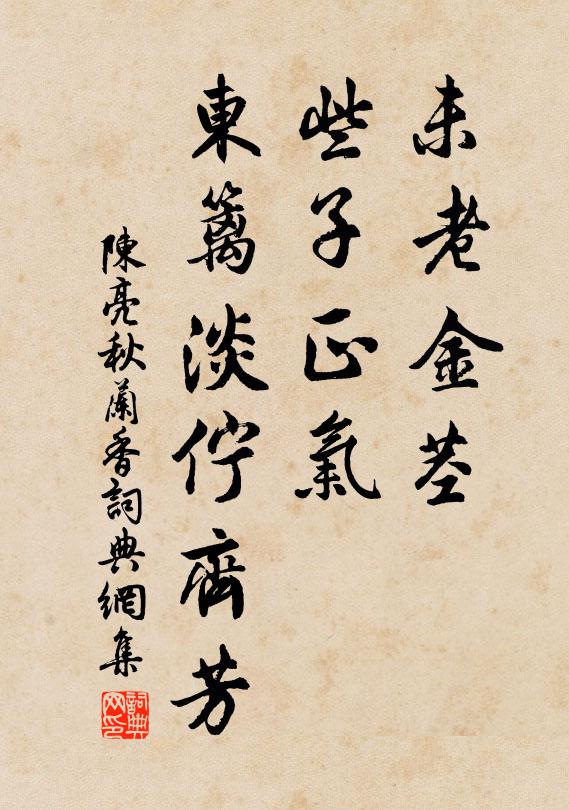 未老金莖
些子正氣
東籬淡佇齊芳
陳亮秋蘭香詞典網集
詞典网印